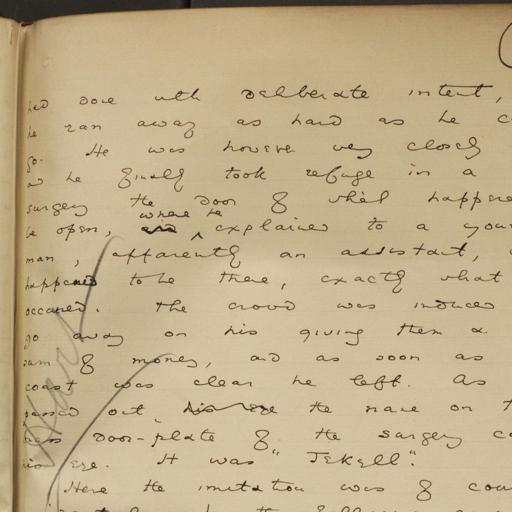 had done with deliberate intent,
he ran away as hard as he
go. He was however very closely
as he finally took refuge in a
surgery the door of which
where he
be open, and ^ explained to a
man, apparently an assistant,
happened to be there, exactly what
occurred. The crowd was induced
go away on his giving them a
sum of money, and as soon as
coast was clear he left. As
passed out, his eye the name on
brass door-plate of the surgery
his eye. It was "Jekyll".
Here the imitation was of